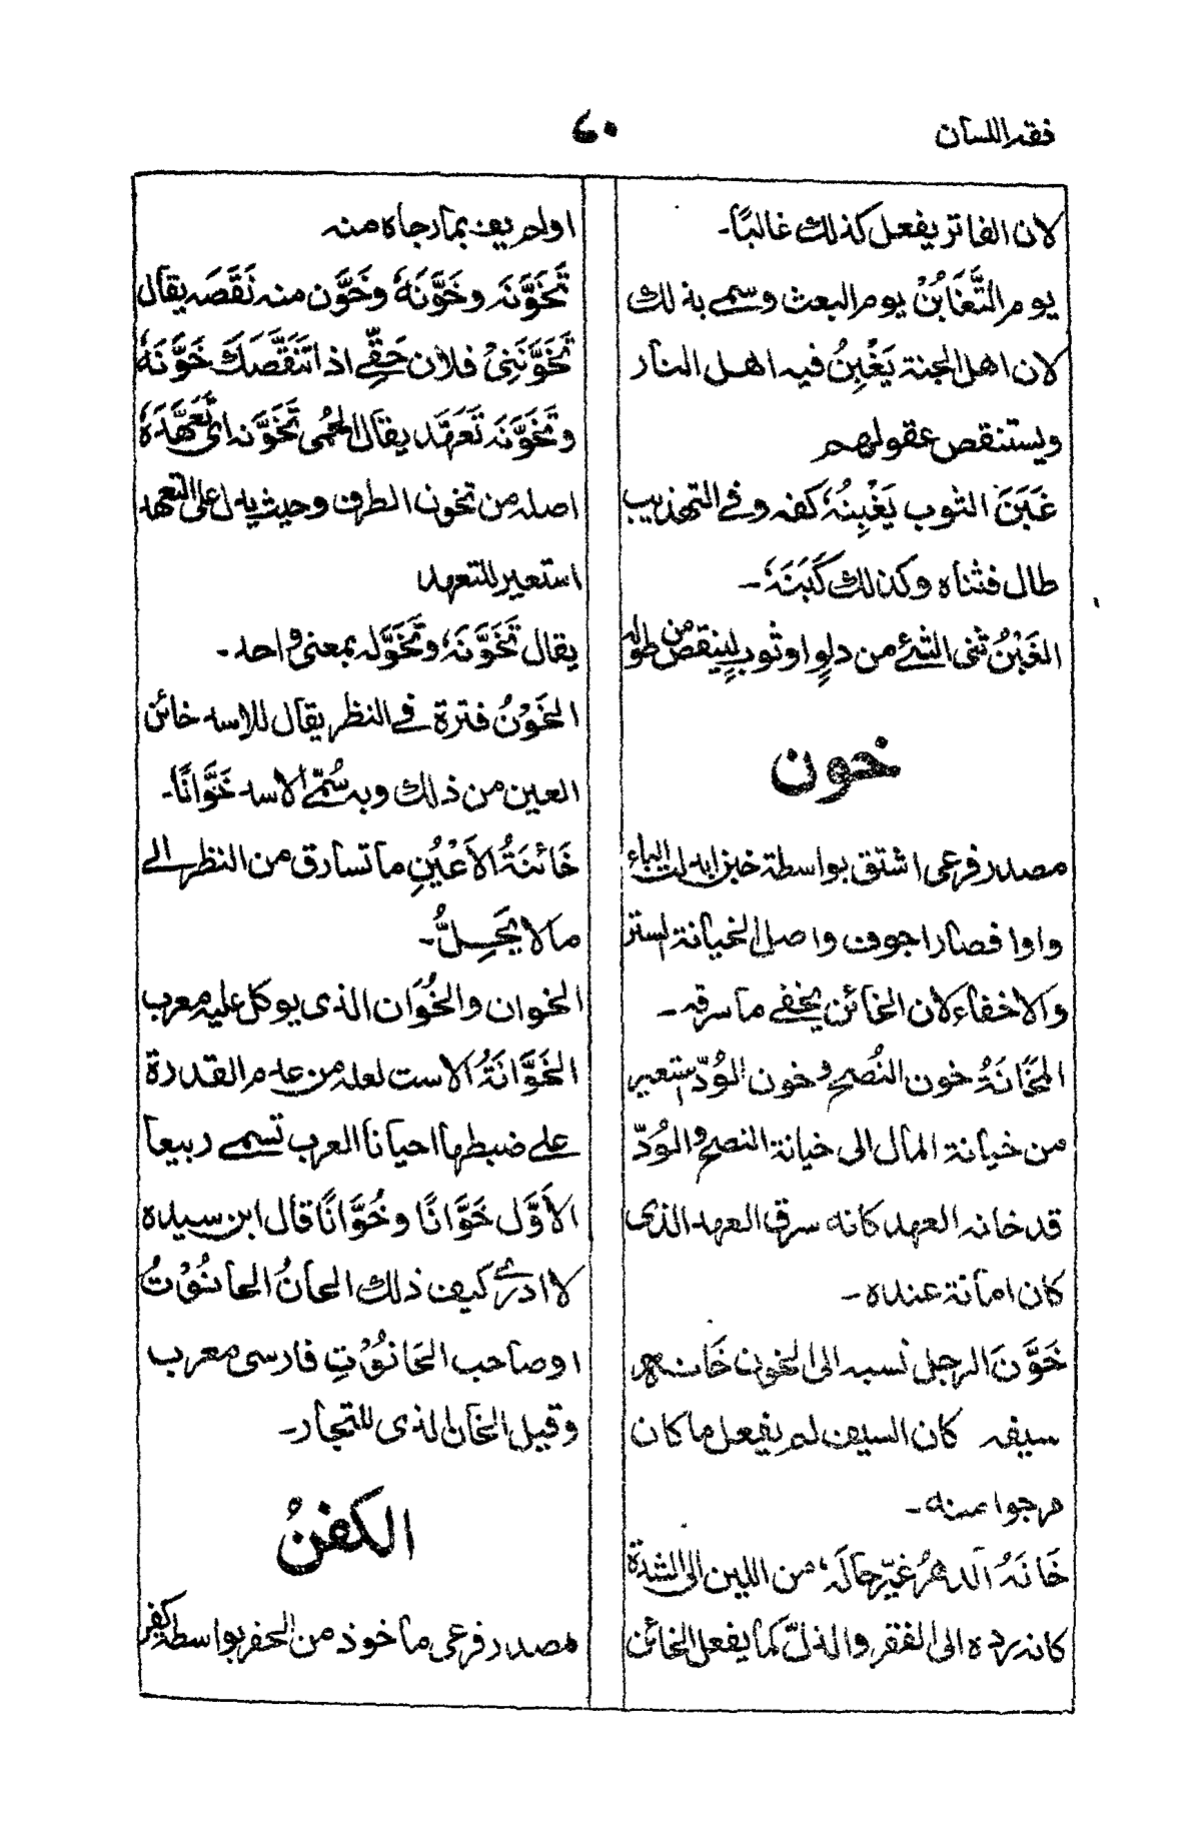 فقه اللسان
٤٠
لان الفاتر يفعل كذلك غالبًا۔
يوم التَّغَابُنْ يوم البعث وسمى بذلك
لان اهل الجنة يَغْبِنُ فيه اهل النار
ويستنقص عقولهم
غَبَنَ الثوب يَغْبِنُهٗ كفه وفى التهذيب
طال فثناه وكذلك كَبَنَهٗ۔
الغَبْنُ ثنى الشئ من دلوٍ او ثوبٍ لينقص من طوله
خون
مصدر فرعى اشتق بواسطة خبن ابدلت الباء
واوا فصار اجوف واصل الخيانة الستر
والاخفاء لان الخائن يخفى ما سرقه۔
المَخَانَةُ خون النُصح وخون الوُدّ استعير
من خيانة المال الى خيانة النصح والوُدّ
قد خانه العهد كانه سرق العهد الذى
كان امانة عنده۔
خَوَّنَ الرجل نسبه الى الخون خَانَ
سيفه كان السيف لم يفعل ما كان
مرجوا منه۔
خَانَهُ الدهرُ غيّر حالَهٗ من اللين الى الشدة
كانه رده الى الفقر والذلّ كما يفعل الخائن
اولم يف بما رجاه منه
تَخَوَّنَه وخَوَّنَهٗ وخَوَّن منه نَقَصَه يقال
تَخَوَّنَنِىْ فلان حَقِّى اذا تَنَقَّصَكَ خَوَّنَهٗ
وتَخَوَّنَه تَعَهَّد يقال الحُمى تَخَوَّنه اى تَعَهَّدَهٗ
اصله من تخون الطرف وحيث يدل على التعهد
استعير للتعهد
يقال تَخَوَّنَهٗ وتَخَوَّله بمعنى واحد۔
الخَوْنُ فترة فى النظر يقال للاسد خائن
العين من ذلك وبه سُمّى الاسد خَوَّانًا۔
خَائنَةُ الاَعْيُنِ ما تسارق من النظر الى
مالا يَحِلُّ۔
الخوان والخُوَان الذى يوكل عليه معرب
الخَوَّانَةُ الاست لعله من عدم القدرة
على ضبطها احيانا العرب تسمى ربيعا
الاَوَّل خَوَّانًا وخُوَّانًا قال ابن سيده
لا ادرى كيف ذلك الحانُ الحانُوْتُ
او صاحب الحَانُوْتِ فارسى معرب
وقيل الخان الذى للتجار۔
الكفنُ
مصدر فرعى ماخوذ من الحفر بواسطة كفر